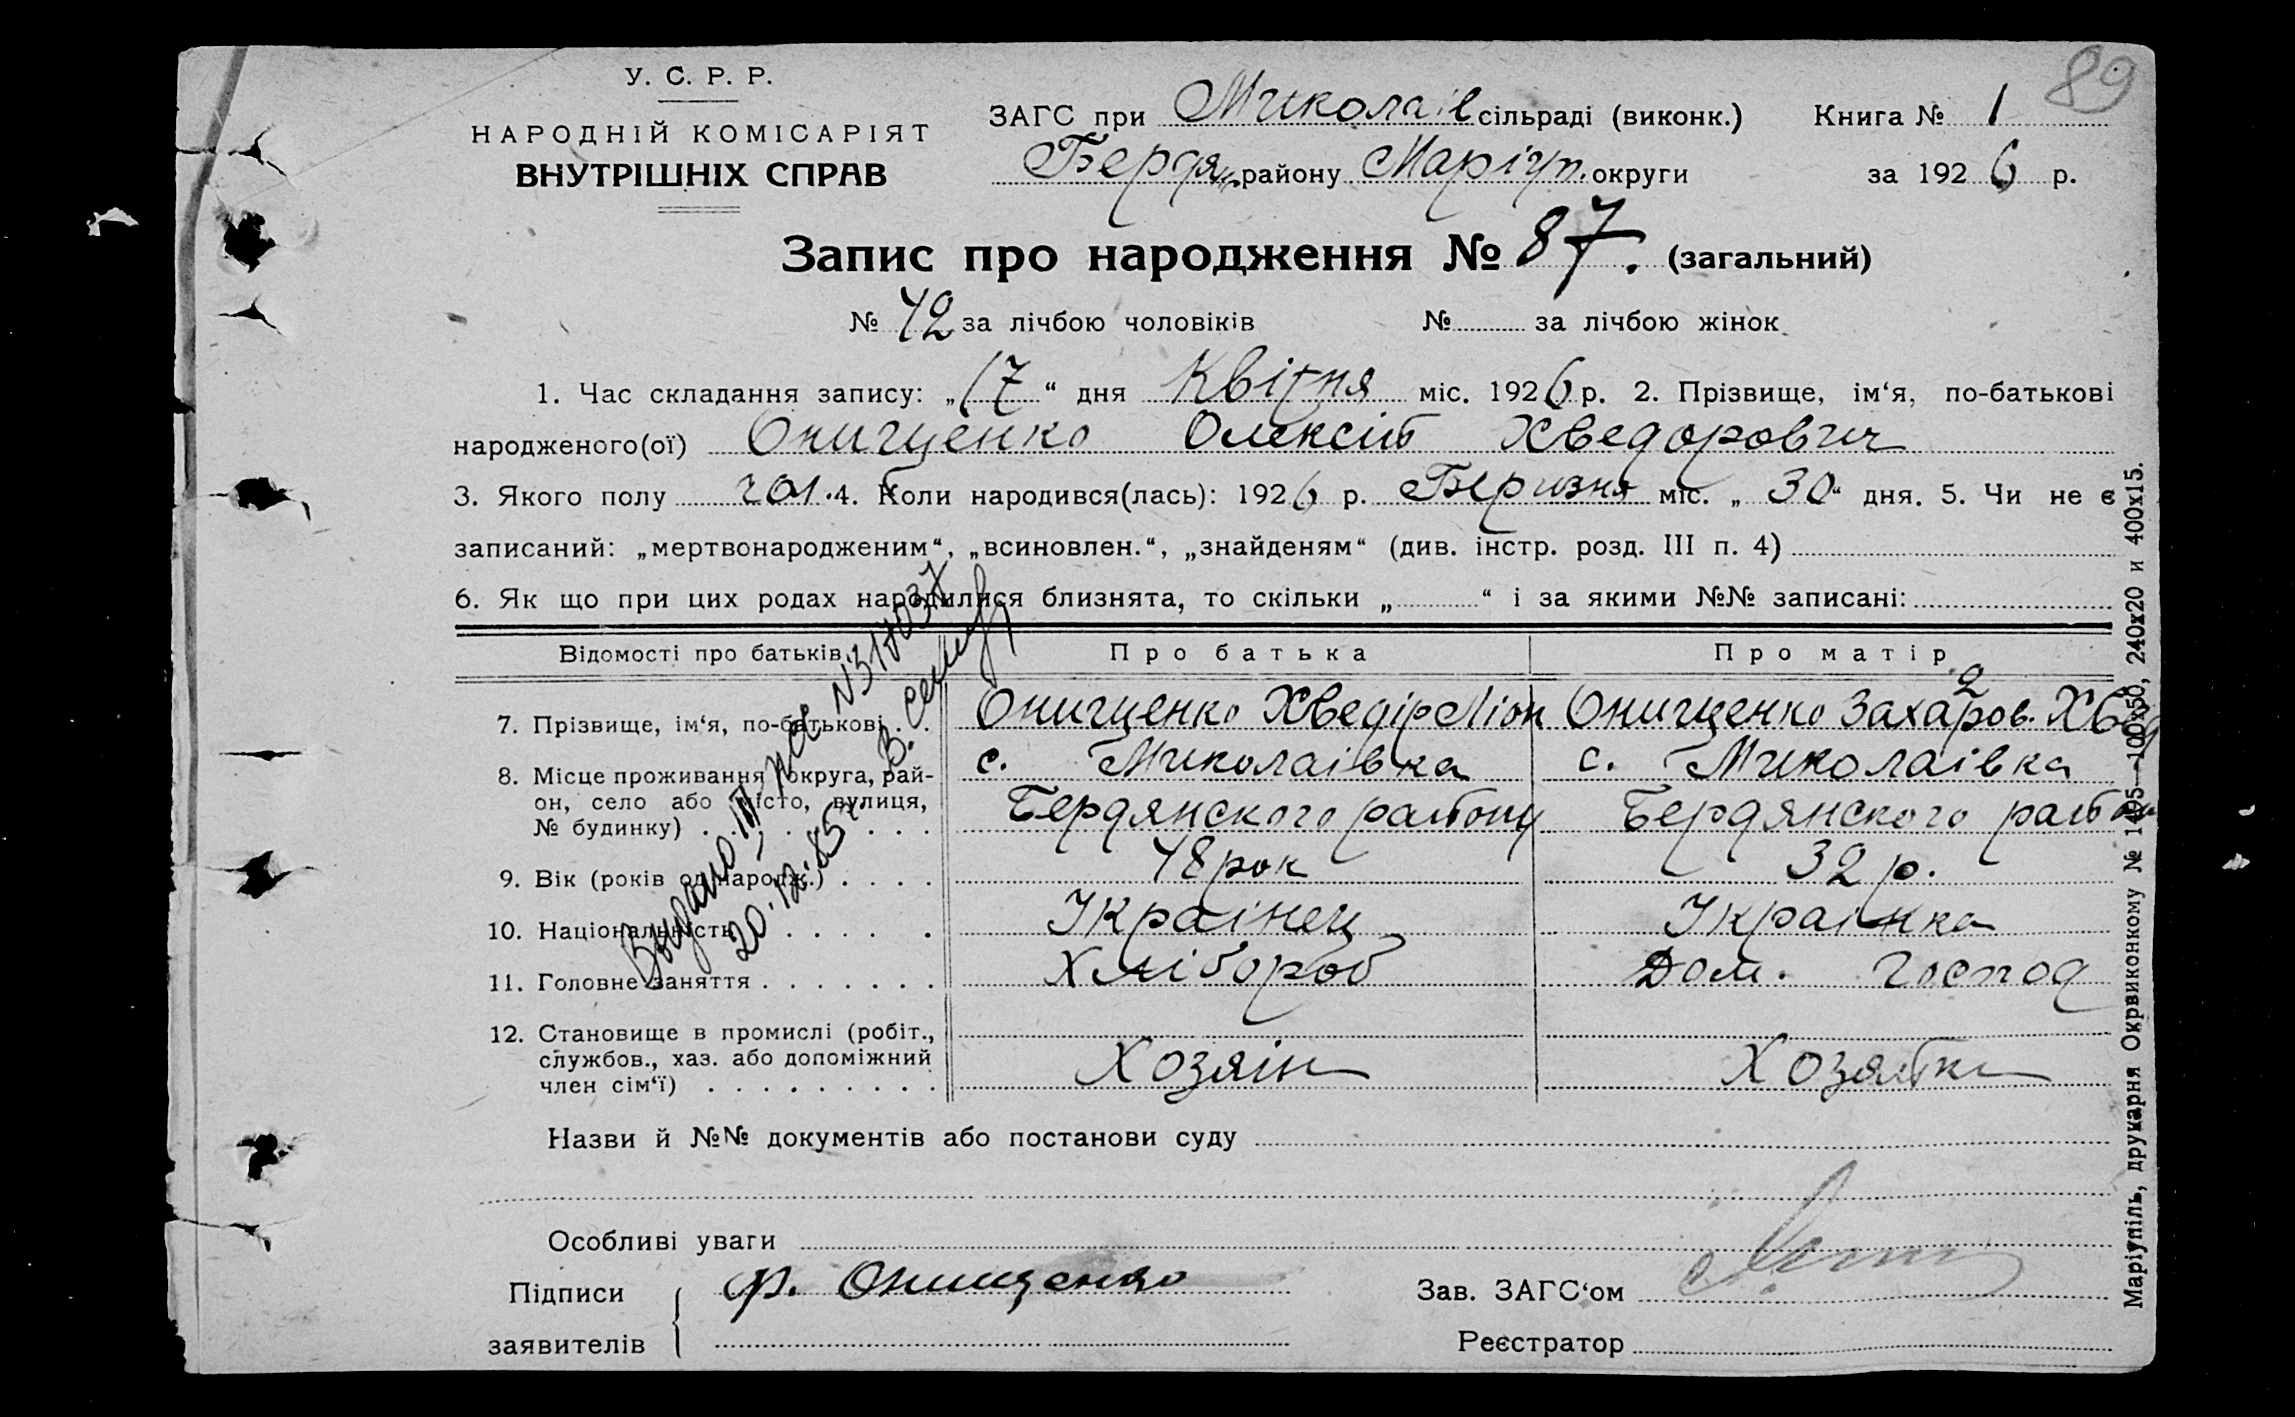 89
У. С. Р. Р.
НАРОДНІЙ КОМІСАРІЯТ
ВНУТРІШНІХ СПРАВ
ЗАГС при Миколаів сільраді (виконк.) Книга № 1
Бердян. району Маріуп. округи за 1926 р.
Запис про народження № 87. (загальний)
№ 42 за лічбою чоловіків № за лічбою жінок
1. Час складання запису: „17“ дня Квітня міс. 1926 р. 2. Прізвище, ім‘я, по-батькові
народженого(ої) Онищенко Олексій Хведорович
3. Якого полу чол. 4. Коли народився(лась): 1926 р. Березня міс. „30“ дня. 5. Чи не є
записаний: „мертвонародженим“, „всиновлен.“, „знайденям“ (див. інстр. розд. III п. 4)
6. Як що при цих родах народилися близнята, то скільки „ “ і за якими №№ записані:
Відомості про батьків Про батька Про матір
7. Прізвище, ім‘я, по-батькові . . Онищенко Хведір Ліон Онищенко Захаров.
8. Місце проживання (округа, рай- с. Миколаівка с. Миколаівка
он, село або місто, вулиця,
№ будинку) Бердянского району Бердянского район
9. Вік (років од народж.) . . . . 48 рок 32 р.
10. Національність . . . . . Украінец Украінка
11. Головне заняття . . . . . . . Хлібороб Дом. господ
12. Становище в промислі (робіт.,
службов., хаз. або допоміжний
член сім‘ї) . . . . . . . . . Хозяін Хозяйка
Видано
20.12.85
Назви й №№ документів або постанови суду
Особливі уваги
Підписи Ф. Онищенко Зав. ЗАГС‘ом
заявителів Реєстратор
Маріупіль, друкарня Окрвиконкому № 1495—100х50, 240х20 и 400х15.